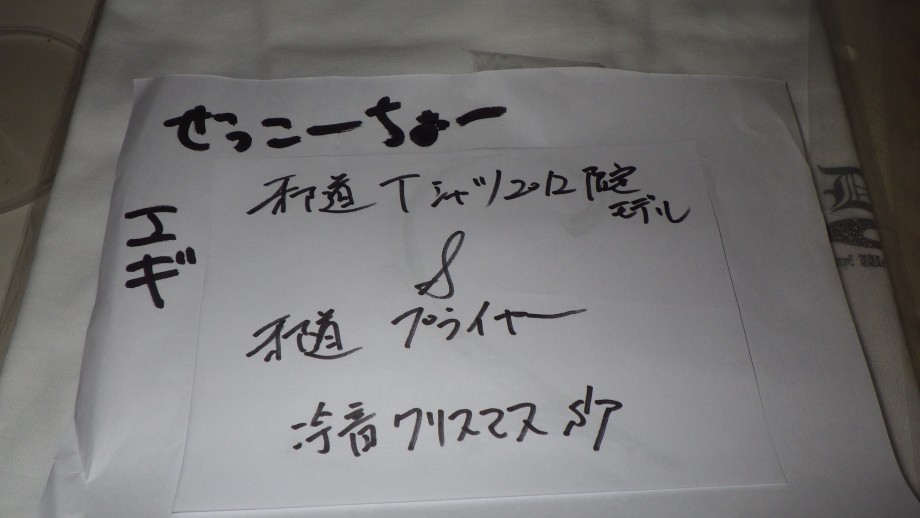 せっこーちょー
エギ
邪道 Tシャツ 2012 限定
モデル
&
邪道 プライヤー
冷音 クリスマス